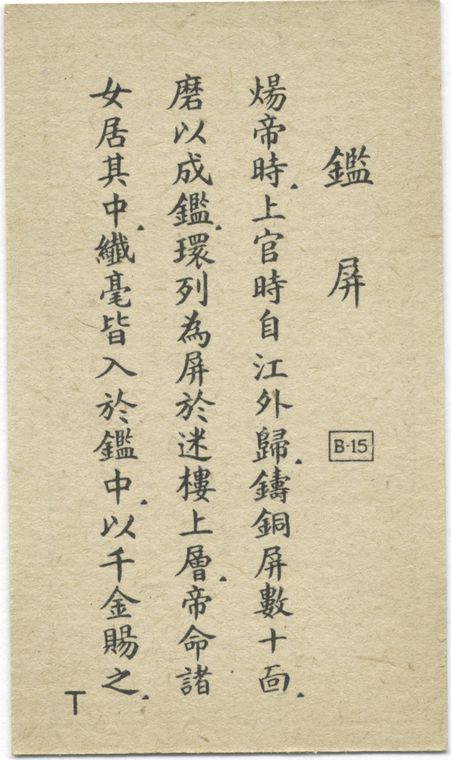 鑑屏
B-15
煬帝時.上官時自江外歸.鑄銅屏數十面.
磨以成鑑.環列為屏於迷樓上層.帝命諸
女居其中.纖毫皆入於鑑中.以千金賜之.
T